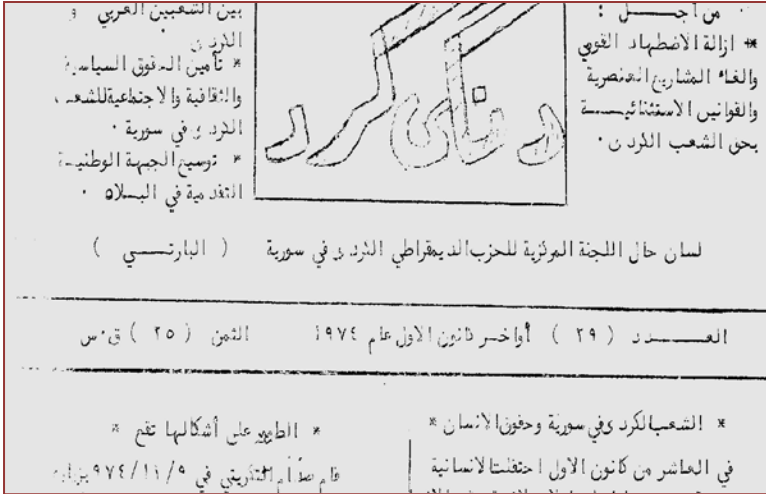 من أجــل :
* ازالة الاضطهاد القومي
والغاء المشاريع العنصرية
والقوانين الاستثنائيــة
بحق الشعب الكردي ·
دنگی كرد
بين الشعبين العربي و
الكردي
* تأمين الحقوق السياسية
والثقافية والاجتماعية للشعب
الكردي في سورية ·
* توسيع الجبهة الوطنية
التقدمية في البــلاد ·
لسان حال اللجنة المركزية للحزب الديمقراطي الكردي في سورية ( البارتــي )
العــــدد ( ٢٩ ) أواخـر كانون الاول عام ١٩٧٤ الثمن ( ٢٥ ) ق·س
* الشعب الكردي في سورية وحقوق الانسان *
في العاشر من كانون الاول احتفلت الانسانية
* الطيور على أشكالها تقع *
في ٩٧٤/١١/٩